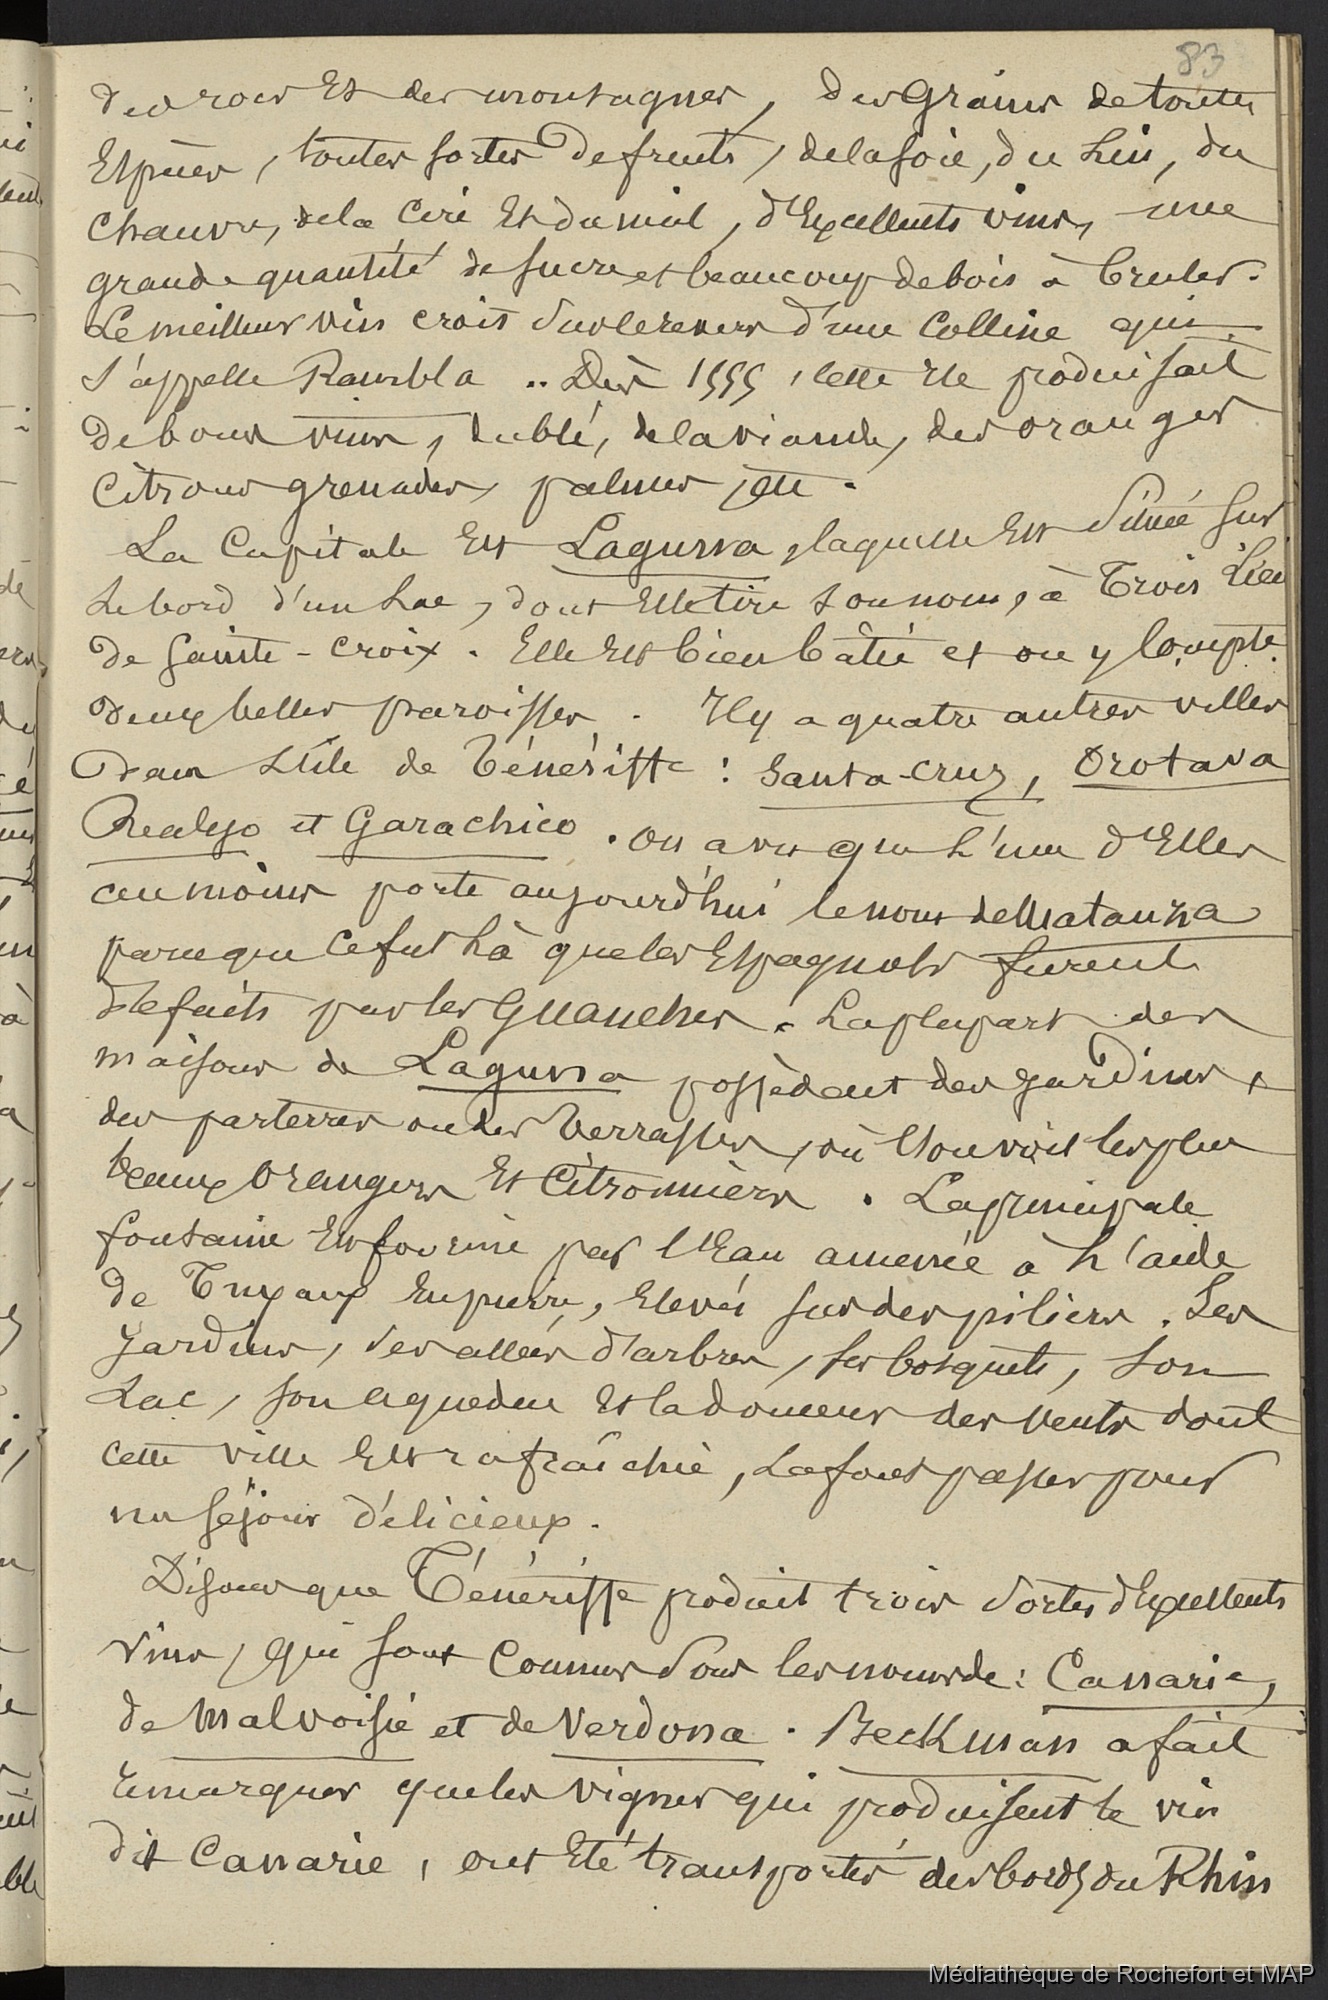 83
des rocs Et des montagnes, des Grains de toutes
Espèces, toutes sortes de fruits, de la soie, du Lin, du
Chanvre, de la Cire Et du miel, d'Excellents vins, une
grande quantité de sucre et beaucoup de bois à bruler.
Le meilleur vin croit sur le revers d'une Colline qui
s'appelle Rambla .. Dès 1555, cette Ile produisait
de bons vins, du blé, de la viande, des oranges
Citrons grenades, palmes, etc.
La Capitale Est Laguna, laquelle Est Située sur
Le bord d'un Lac, dont Elle tire son nom, à Trois Lieu
de Sainte-Croix. Elle Est bien bâtie et on y Compte
deux belles paroisses. Il y a quatre autres villes
Dans L'île de Ténériffe : Santa-Cruz, Orotava
Realejo et Garachico. On a vu que L'une d'Elles
au moins porte aujourd'hui le nom de Matanza
parce que Ce fut Là que les Espagnols furent
défaits par les Guanches. La plupart des
maisons de Laguna possèdent des jardins,
des parterres ou des terrasses, où l'on voit les plus
beaux Orangers Et Citronniers. La principale
fontaine Est fournie par l'Eau amenée à L'aide
de Tuyaux En pierre, Elevés sur des piliers. Ses
Jardins, ses allées d'arbres, ses bosquets, Son
Lac, son aqueduc Et la douceur des vents dont
cette ville Est rafraîchie, La font passer pour
un séjour délicieux.
Disons que Ténériffe produit trois Sortes d'Excellents
Vins, qui sont Connus sous les noms de : Canarie,
de Malvoisie et de Verdona. Beckman a fait
remarquer que les vignes qui produisent le vin
dit Canarie, ont Eté transportés des bords du Rhin
Médiathèque de Rochefort et MAP